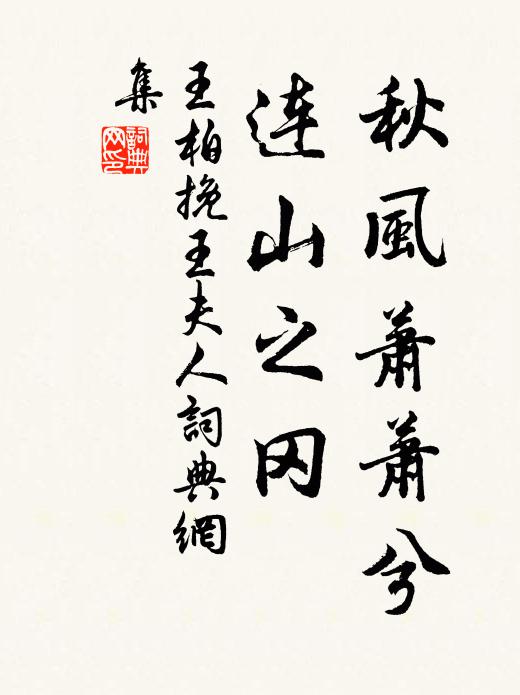 秋風蕭蕭兮
連山之冈
王柏挽王夫人詞典網
集
詞典
网印